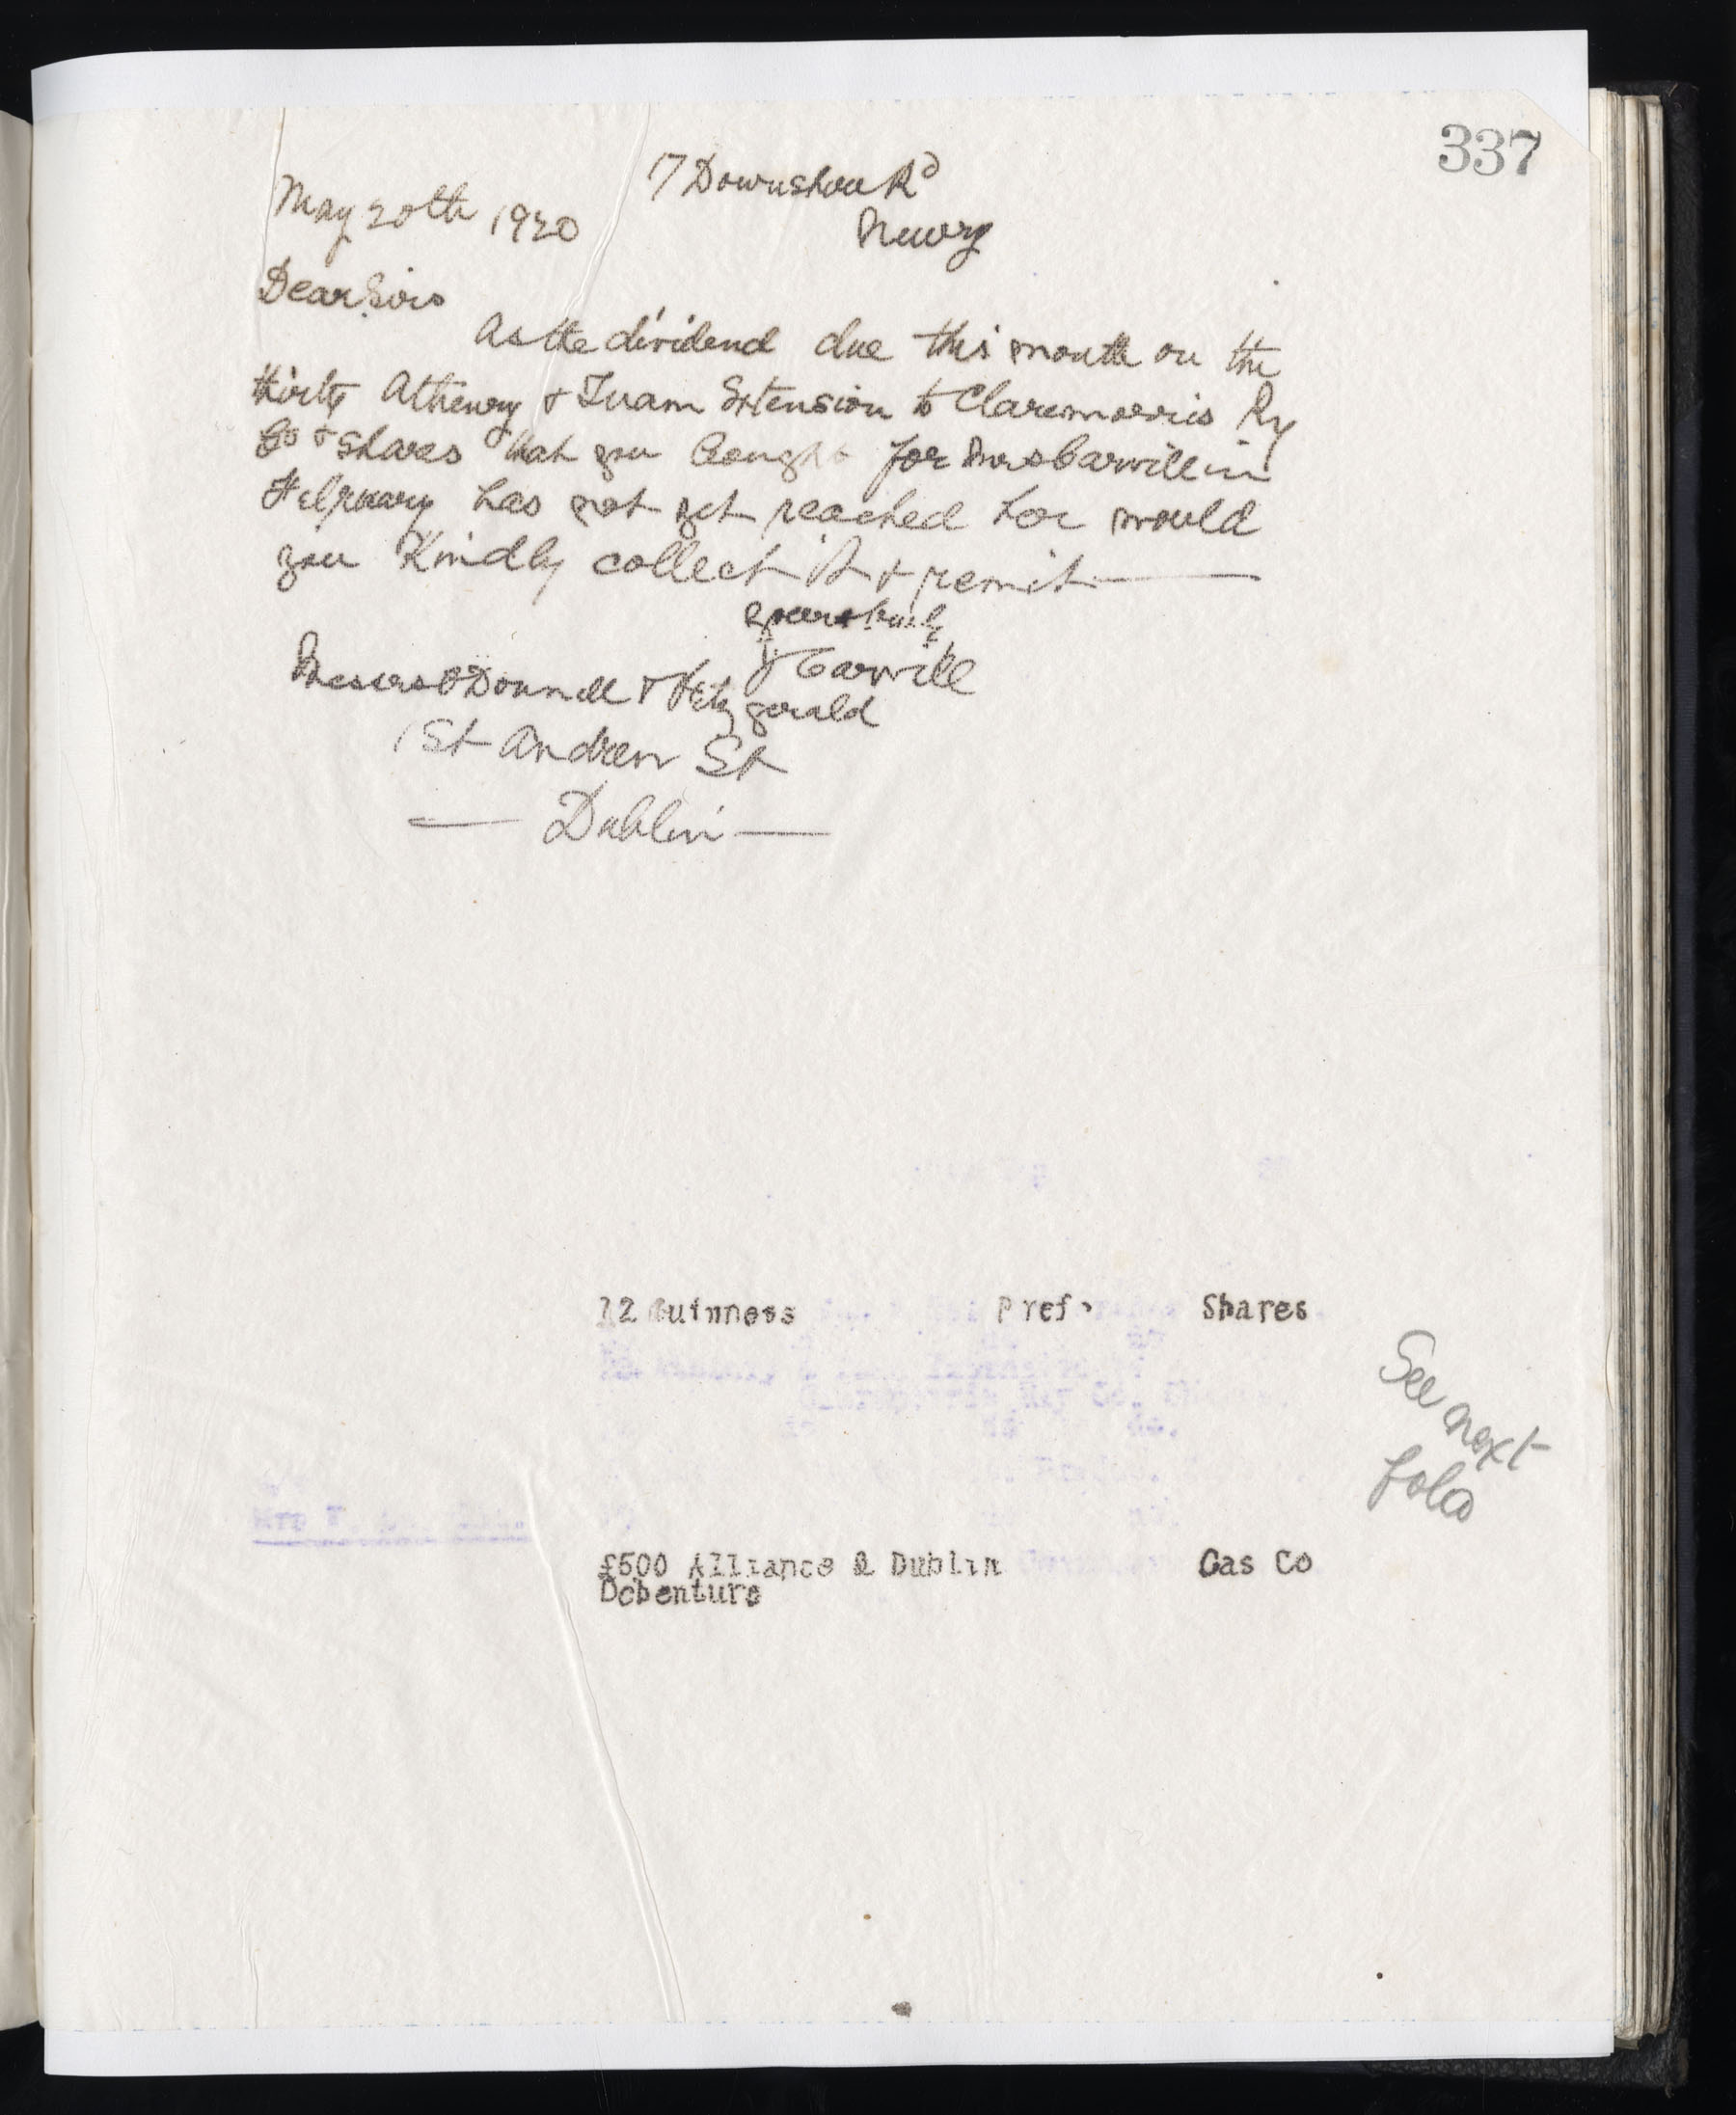 337
17 Downshire Rd
May 20th 1920
Newry
Dear Sirs
As the dividend due this month on the
thirty Athenry & Tuam Extension to Claremorris Ry
Co & Shares that you bought for Mrs Carvill in
February has not yet reached her would
you Kindly collect it & remit
yours truly
J Carvill
Messrs O'Donnell & Fitzgerald
1 St Andrew St
Dublin
12 Guinness Pref. Shares
See next
folo
£500 Alliance & Dublin Gas Co
Debenture